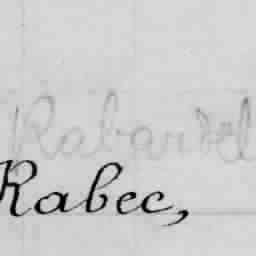 Rabardel
Rabec,